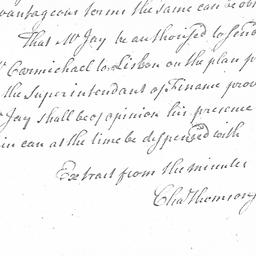 vantageous terms the same can be ob
That Mr Jay be authorised to send
Mr Carmichael to Lisbon on the plan p
the Superintendant of Finance prov
Jay shall be of opinion his presence
in can at the time be dispensed with
Extract from the minutes
Chas Thomson